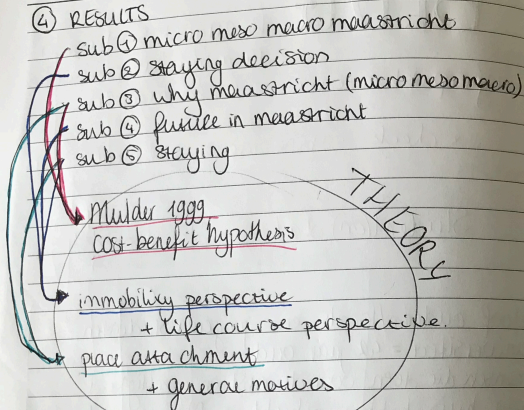 ④ RESULTS
sub ① micro meso macro maastricht
sub ② staying decision
sub ③ why maastricht (micro meso macro)
sub ④ future in maastricht
sub ⑤ staying
THEORY
Mulder 1999
cost-benefit hypothesis
immobility perspective
+ life course perspective.
place attachment
+ general motives